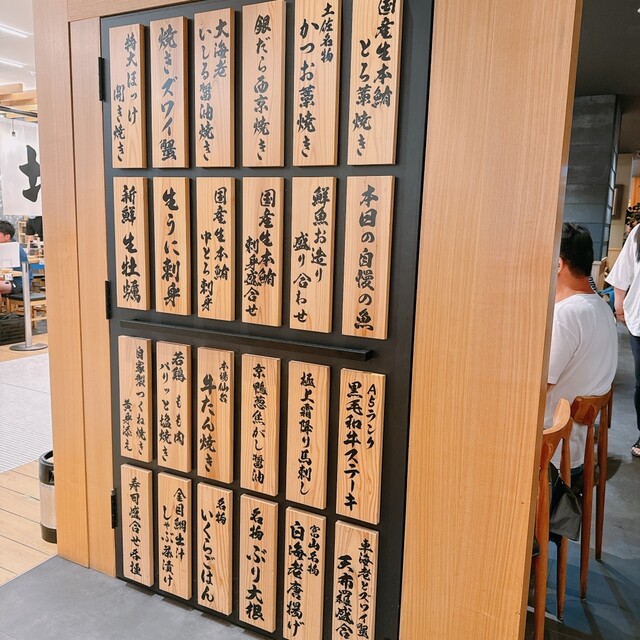 国産生本鮪
とろ藁焼き
土佐名物
かつお藁焼き
銀だら西京焼き
大海老
いしる醤油焼き
焼きズワイ蟹
特大ほっけ
開き焼き
本日の自慢の魚
鮮魚お造り
盛り合わせ
国産生本鮪
刺身盛合せ
国産生本鮪
中とろ刺身
生うに刺身
新鮮生牡蠣
A5ランク
黒毛和牛ステーキ
極上霜降り馬刺し
京鴨葱焦がし醤油
本場仙台
牛たん焼き
若鶏もも肉
パリッと塩焼き
自家製つくね焼き
黄身添え
車海老とズワイ蟹
天布羅盛合
富山名物
白海老唐揚げ
名物ぶり大根
名物
いくらごはん
金目鯛出汁
しゃぶ茶漬け
寿司盛合せ各種